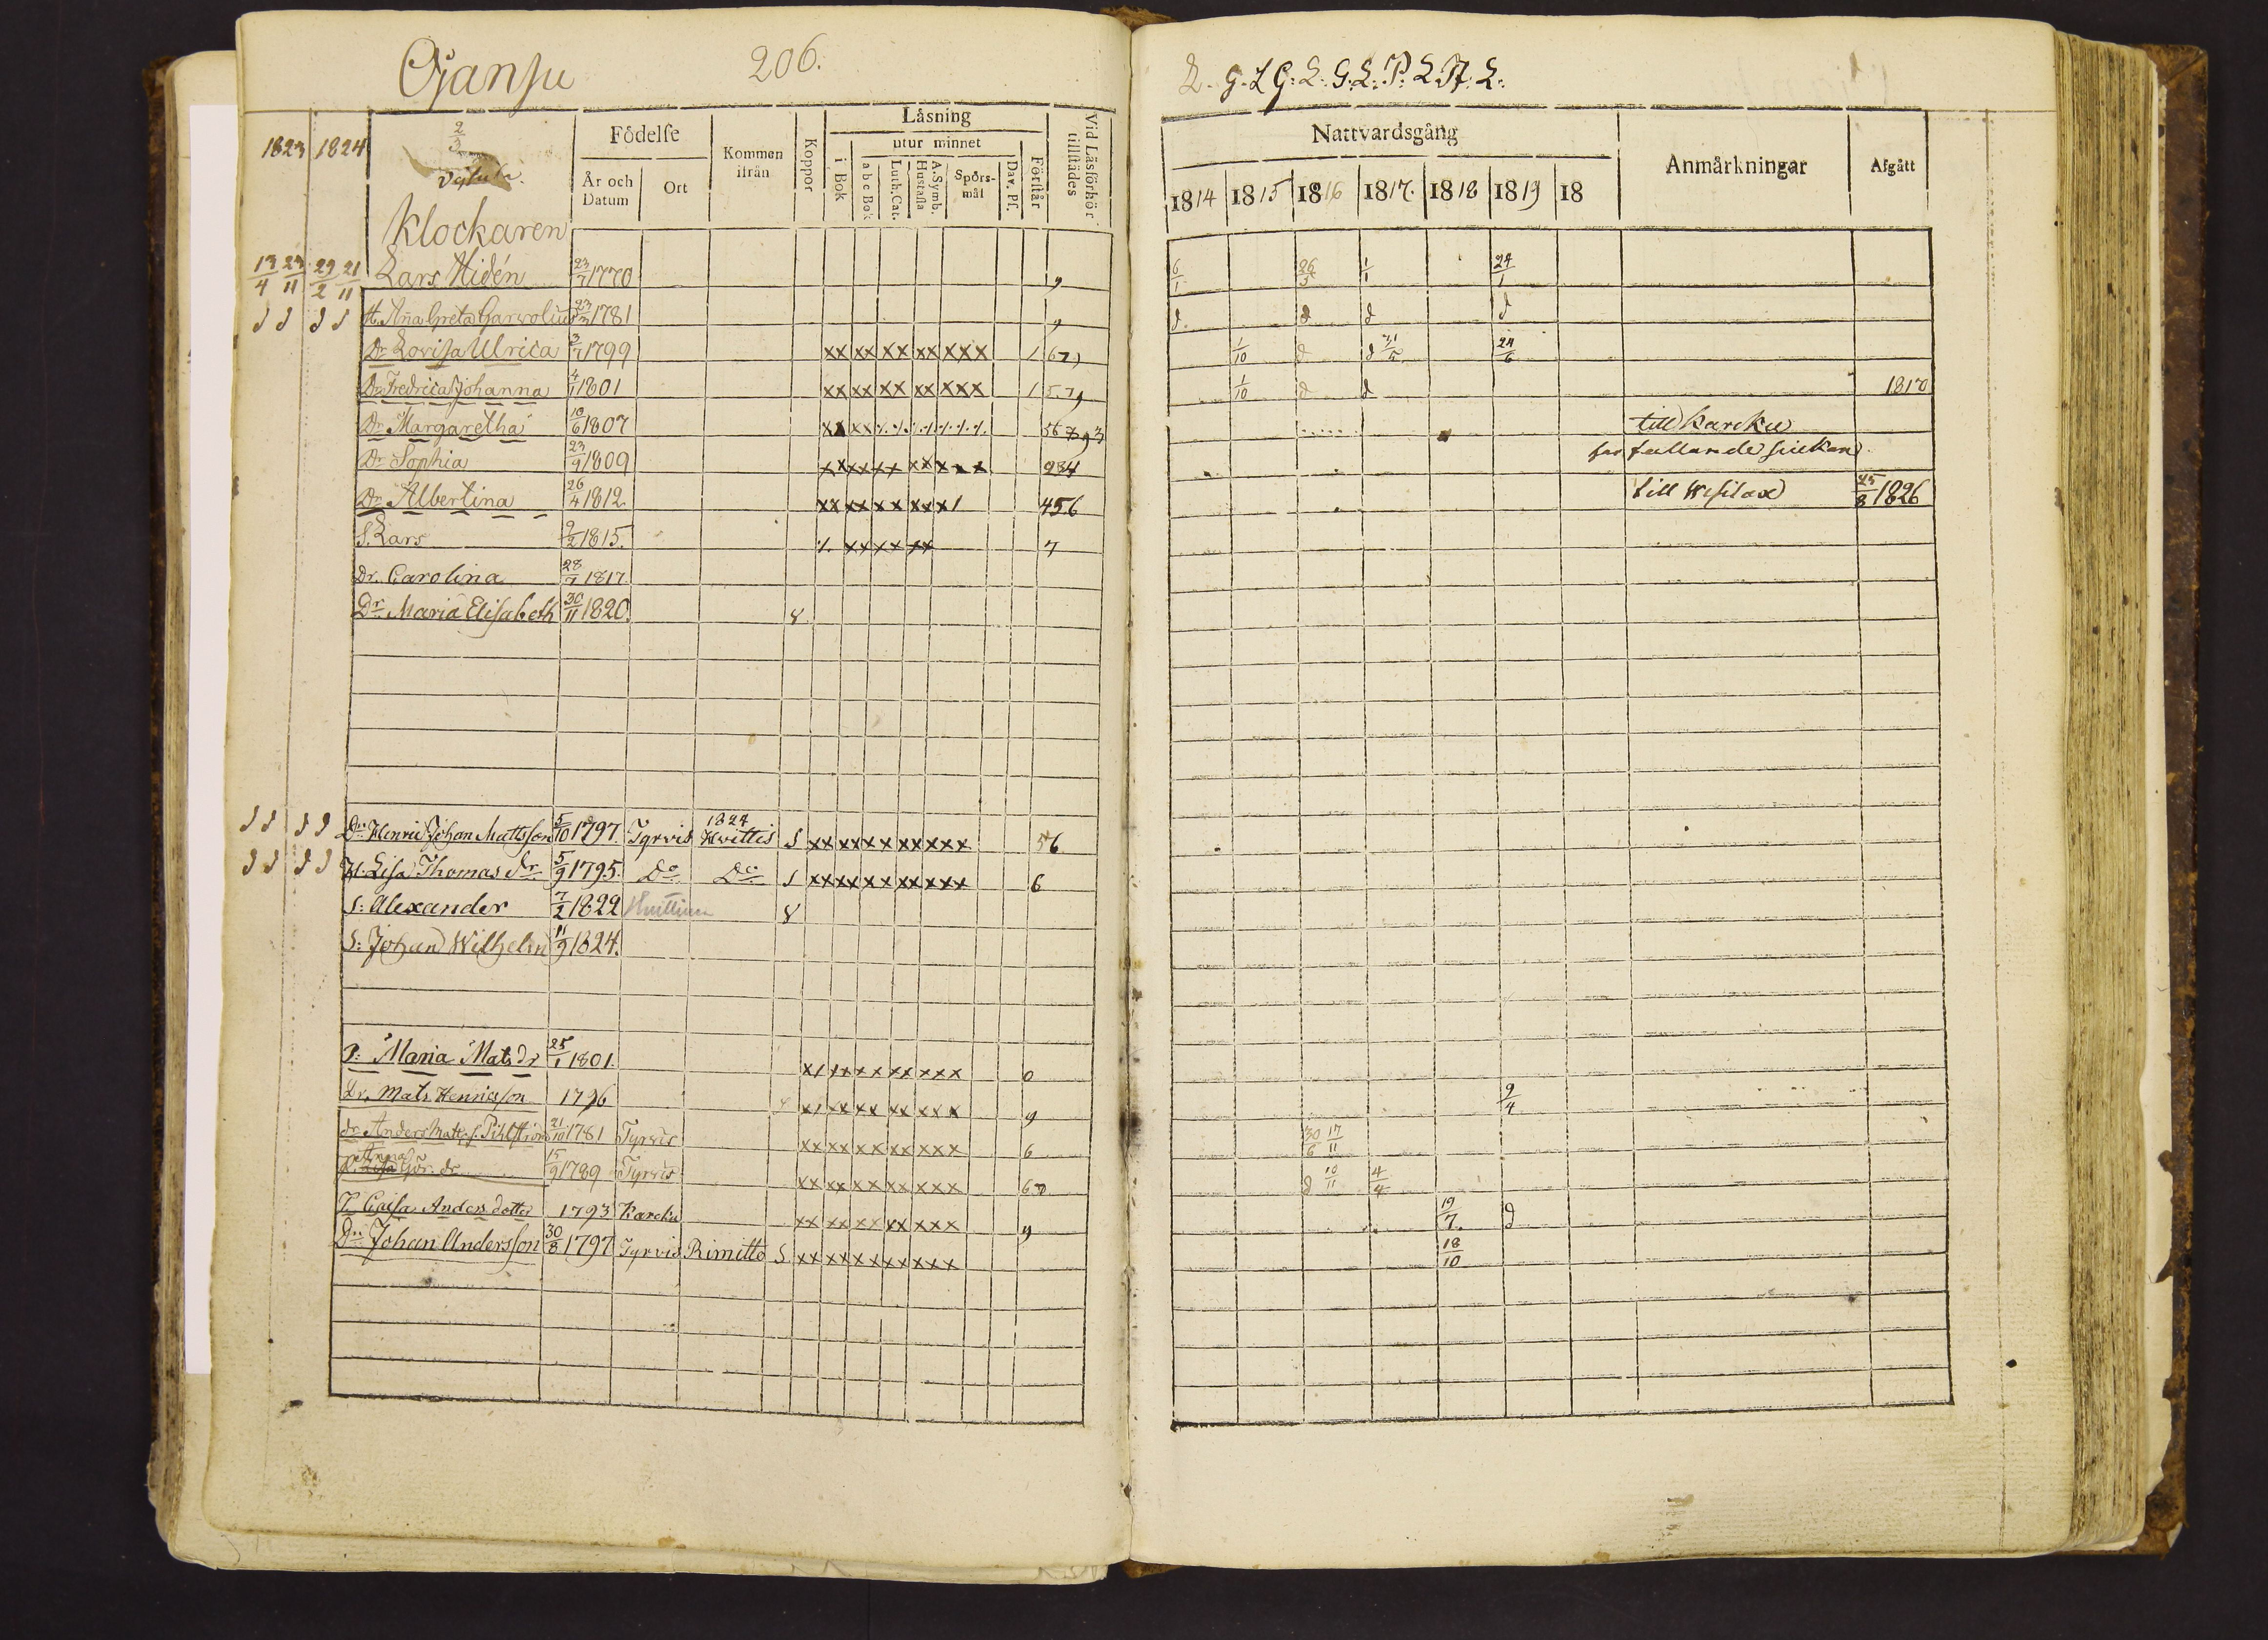 Ojansu 206.
1823 1824
2/3
Födelse
År och Datum
Ort
Kommen ifrån
Koppor
Läsning
i Bok
utur minnet
a b c Bok
Luth. Cat.
A. Symb. Hustafla
Spörs-mål
Dav. Ps.
Förstår
Vid Läsförhör tillstädes
Klockaren
13/4 23/11 29/2 21/11 Lars Hidén 23/7 1770 9
d d d d H. Aña Greta Garvolius 23/3 1781 9
Dr Lovisa Ulrica 3/7 1799 xx xx xx xx xxx 1 67,
Dr Fredrica Johanna 4/1 1801 xx xx xx xx xxx 1 5.79
Dr Margaretha 10/6 1807
Dr Sophia 23/9 1809 xx xx xx xx xxx 984
Dr Albertina 26/4 1812. xx xx xx xx x1 456
S. Lars 9/2 1815. xx xx xx 7
Dr. Carolina 28/7 1817
Dr Maria Elisabeth 30/11 1820.
d d d d Dr Henric Johan Mattsson 5/10 1797. Tyrvis 1824 Hvittis S xx xx xx xx xxx 56
d d d d H. Lisa Thomas dr 5/9 1795. Do Do S xx xx xx xx xxx 6
S: Alexander 7/2 1822
S: Johan Wilhelm 11/9 1824.
P: Maria Mats dr 25/1 1801. x1 xx xx xx xxx 0
Dr. Mats Henricsson 1796 x1 xx xx xx xxx 9
dr Anders Matt. s. Pihlström 21/10 1781 Tyrvis xx xx xx xx xxx 6
Anna Gör. dr 15/9 1789 Tyrvis xx xx xx xx xxx 67
P. Caisa Anders dotter 1793 Karcku xx xx xx xx xxx 9
Dr Johan Andersson 30/8 1797 Tyrvis Rimitto S. xx xx xx xx xxx
Nattvardsgång
Anmärkningar
Afgått
1814 1815 1816 1817. 1818 1819 18
6/1 26/5 1/1 24/1
d. d d d
1/10 d d 24/6
1/10 d d 1817
till Karcku
fallande
till Wesilax 25/8 1826
9/4
30/6 17/11
d 10/11 4/4
19/7. d
18/10